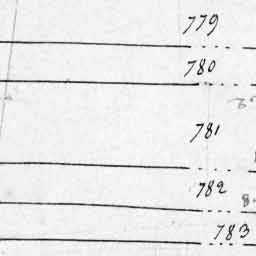 779
780
781
782
783